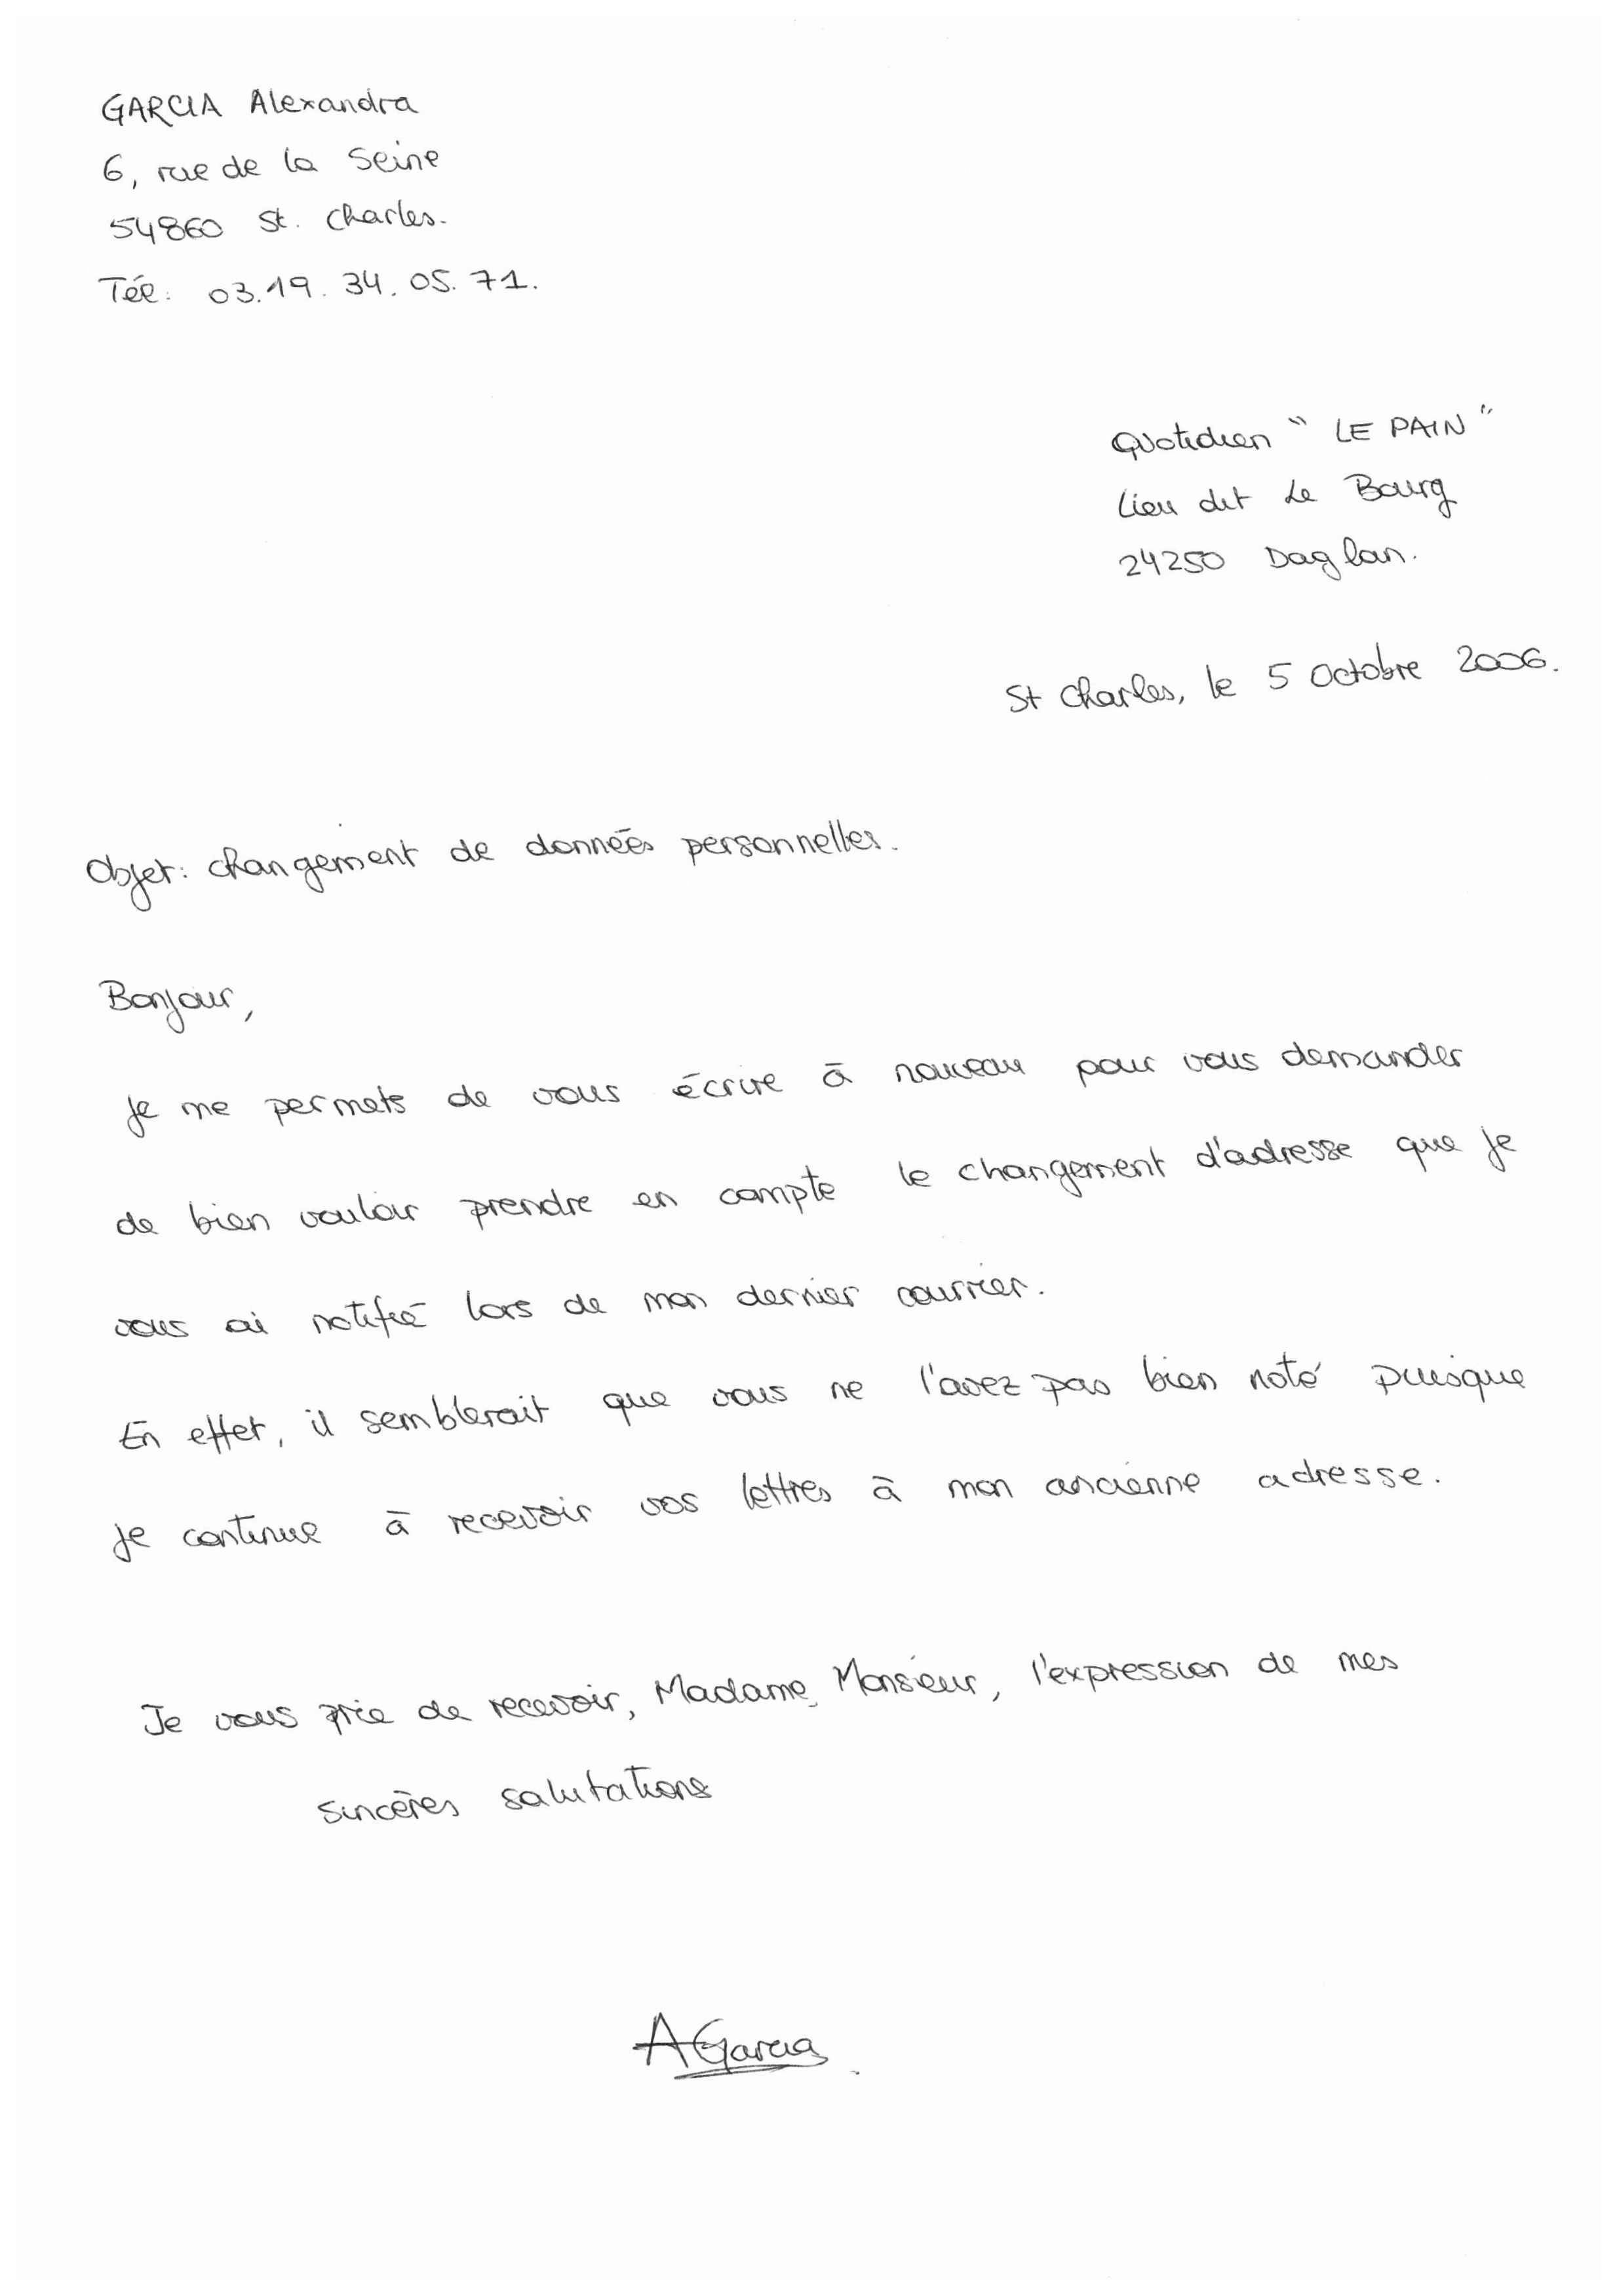 GARCIA Alexandra
6, rue de la Seine
54860 St. Charles.
Tél: 03.19.34.05.71.
Quotidien "LE PAIN"
Lieu dit Le Bourg
24250 Daglan.
St Charles, le 5 Octobre 2006.
Objet: changement de données personnelles.
Bonjour,
Je me permets de vous écrire à nouveau pour vous demander
de bien vouloir prendre en compte le changement d'adresse que je
vous ai notifié lors de mon dernier courrier.
En effet, il semblerait que vous ne l'avez pas bien noté puisque
je continue à recevoir vos lettres à mon ancienne adresse.
Je vous prie de recevoir, Madame, Monsieur, l'expression de mes
sincères salutations
AGarcia